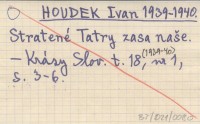 HOUDEK Ivan 1939-1940.
Stratené Tatry zasa naše.
(1939-40)
– Krásy Slov. t. 18, nr 1,
s. 3-6.